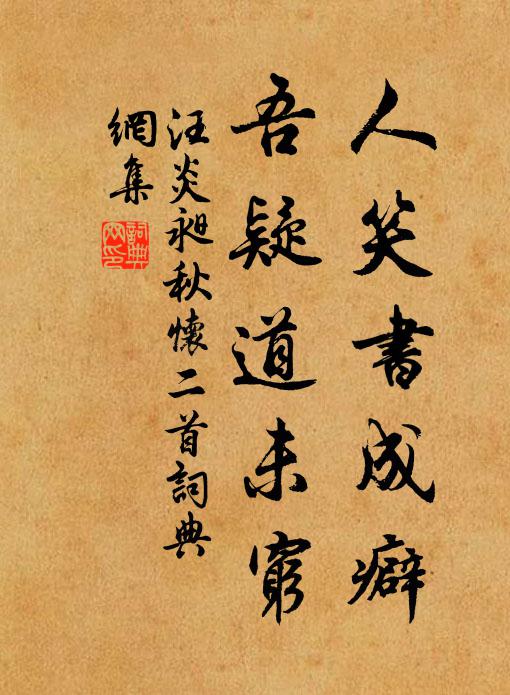 人笑書成癖
吾疑道未窮
汪炎昶秋懷二首詞典
網集
詞典
網印